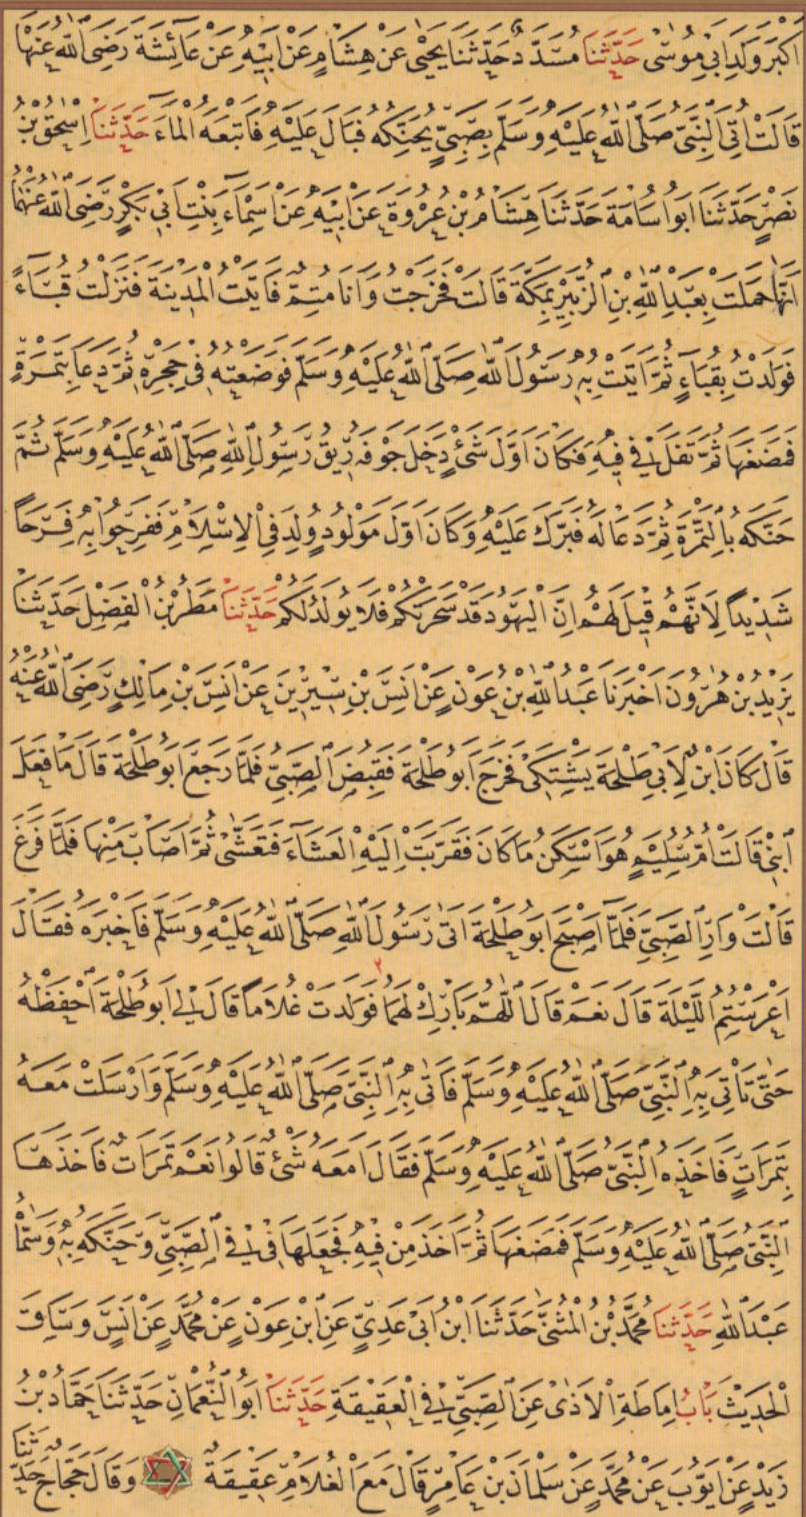 اَكْبَرَ وَلَدِ اَبِي مُوسٰى حَدَّثَنَا مُسَدَّدٌ حَدَّثَنَا يَحْيٰى عَنْ هِشَامٍ عَنْ اَبِيهِ عَنْ عَائِشَةَ رَضِيَ اللّٰهُ عَنْهَا
قَالَتْ اُتِيَ النَّبِيُّ صَلَّى اللّٰهُ عَلَيْهِ وَسَلَّمَ بِصَبِيٍّ يُحَنِّكُهُ فَبَالَ عَلَيْهِ فَاَتْبَعَهُ الْمَاءَ حَدَّثَنَا اِسْحٰقُ بْنُ
نَصْرٍ حَدَّثَنَا اَبُو اُسَامَةَ حَدَّثَنَا هِشَامُ بْنُ عُرْوَةَ عَنْ اَبِيهِ عَنْ اَسْمَاءَ بِنْتِ اَبِي بَكْرٍ رَضِيَ اللّٰهُ عَنْهُمَا
اَنَّهَا حَمَلَتْ بِعَبْدِ اللّٰهِ بْنِ الزُّبَيْرِ بِمَكَّةَ قَالَتْ فَخَرَجْتُ وَاَنَا مُتِمٌّ فَاَتَيْتُ الْمَدِينَةَ فَنَزَلْتُ قُبَاءً
فَوَلَدْتُ بِقُبَاءٍ ثُمَّ اَتَيْتُ بِهِ رَسُولَ اللّٰهِ صَلَّى اللّٰهُ عَلَيْهِ وَسَلَّمَ فَوَضَعْتُهُ فِي حَجْرِهِ ثُمَّ دَعَا بِتَمْرَةٍ
فَمَضَغَهَا ثُمَّ تَفَلَ فِي فِيهِ فَكَانَ اَوَّلَ شَيْءٍ دَخَلَ جَوْفَهُ رِيقُ رَسُولِ اللّٰهِ صَلَّى اللّٰهُ عَلَيْهِ وَسَلَّمَ ثُمَّ
حَنَّكَهُ بِالتَّمْرَةِ ثُمَّ دَعَا لَهُ فَبَرَّكَ عَلَيْهِ وَكَانَ اَوَّلَ مَوْلُودٍ وُلِدَ فِي الْاِسْلَامِ فَفَرِحُوا بِهِ فَرَحًا
شَدِيدًا لِاَنَّهُمْ قِيلَ لَهُمْ اِنَّ الْيَهُودَ قَدْ سَحَرَتْكُمْ فَلَا يُولَدُ لَكُمْ حَدَّثَنَا مَطَرُ بْنُ الْفَضْلِ حَدَّثَنَا
يَزِيدُ بْنُ هٰرُونَ اَخْبَرَنَا عَبْدُ اللّٰهِ بْنُ عَوْنٍ عَنْ اَنَسِ بْنِ سِيرِينَ عَنْ اَنَسِ بْنِ مَالِكٍ رَضِيَ اللّٰهُ عَنْهُ
قَالَ كَانَ ابْنٌ لِاَبِي طَلْحَةَ يَشْتَكِي فَخَرَجَ اَبُو طَلْحَةَ فَقُبِضَ الصَّبِيُّ فَلَمَّا رَجَعَ اَبُو طَلْحَةَ قَالَ مَا فَعَلَ
ابْنِي قَالَتْ اُمُّ سُلَيْمٍ هُوَ اَسْكَنُ مَا كَانَ فَقَرَّبَتْ اِلَيْهِ الْعَشَاءَ فَتَعَشّٰى ثُمَّ اَصَابَ مِنْهَا فَلَمَّا فَرَغَ
قَالَتْ وَارِ الصَّبِيَّ فَلَمَّا اَصْبَحَ اَبُو طَلْحَةَ اَتٰى رَسُولَ اللّٰهِ صَلَّى اللّٰهُ عَلَيْهِ وَسَلَّمَ فَاَخْبَرَهُ فَقَالَ
اَعْرَسْتُمُ اللَّيْلَةَ قَالَ نَعَمْ قَالَ اللّٰهُمَّ بَارِكْ لَهُمَا فَوَلَدَتْ غُلَامًا قَالَ لِي اَبُو طَلْحَةَ احْفَظْهُ
حَتّٰى تَاْتِيَ بِهِ النَّبِيَّ صَلَّى اللّٰهُ عَلَيْهِ وَسَلَّمَ فَاَتٰى بِهِ النَّبِيَّ صَلَّى اللّٰهُ عَلَيْهِ وَسَلَّمَ وَاَرْسَلَتْ مَعَهُ
بِتَمَرَاتٍ فَاَخَذَهُ النَّبِيُّ صَلَّى اللّٰهُ عَلَيْهِ وَسَلَّمَ فَقَالَ اَمَعَهُ شَيْءٌ قَالُوا نَعَمْ تَمَرَاتٌ فَاَخَذَهَا
النَّبِيُّ صَلَّى اللّٰهُ عَلَيْهِ وَسَلَّمَ فَمَضَغَهَا ثُمَّ اَخَذَ مِنْ فِيهِ فَجَعَلَهَا فِي فِي الصَّبِيِّ وَحَنَّكَهُ بِهِ وَسَمَّاهُ
عَبْدَ اللّٰهِ حَدَّثَنَا مُحَمَّدُ بْنُ الْمُثَنّٰى حَدَّثَنَا ابْنُ اَبِي عَدِيٍّ عَنِ ابْنِ عَوْنٍ عَنْ مُحَمَّدٍ عَنْ اَنَسٍ وَسَاقَ
الْحَدِيثَ بَابُ اِمَاطَةِ الْاَذٰى عَنِ الصَّبِيِّ فِي الْعَقِيقَةِ حَدَّثَنَا اَبُو النُّعْمَانِ حَدَّثَنَا حَمَّادُ بْنُ
زَيْدٍ عَنْ اَيُّوبَ عَنْ مُحَمَّدٍ عَنْ سَلْمَانَ بْنِ عَامِرٍ قَالَ مَعَ الْغُلَامِ عَقِيقَةٌ وَقَالَ حَجَّاجٌ حَدَّثَنَا